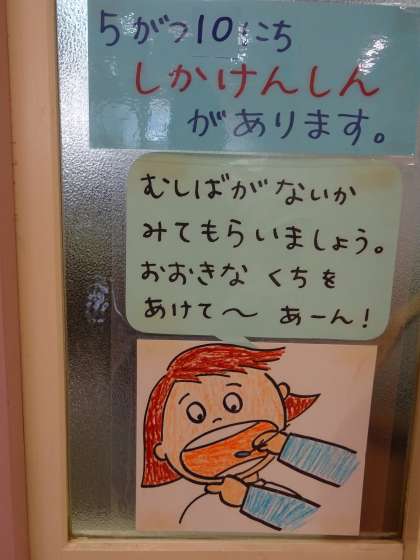 5がつ10にち
しかけんしん
があります。
むしばがないか
みてもらいましょう。
おおきな くちを
あけて〜 あーん！